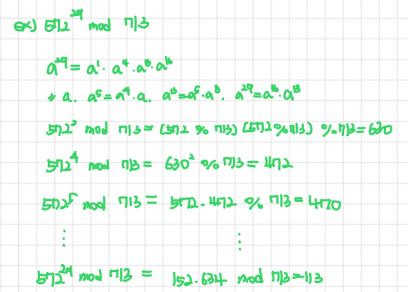 ex) 572²⁹ mod 713
a²⁹ = a¹ · a⁴ · a⁸ · a¹⁶
» a. a⁵ = a⁴ · a, a¹³ = a⁵ · a⁸, a²⁹ = a¹⁶ · a¹³
572² mod 713 = (572 % 713) (572 % 713) % 713 = 630
572⁴ mod 713 = 630² % 713 = 472
572⁵ mod 713 = 572 · 472 % 713 = 470
⋮ ⋮
572²⁹ mod 713 = 152 · 634 mod 713 = 113